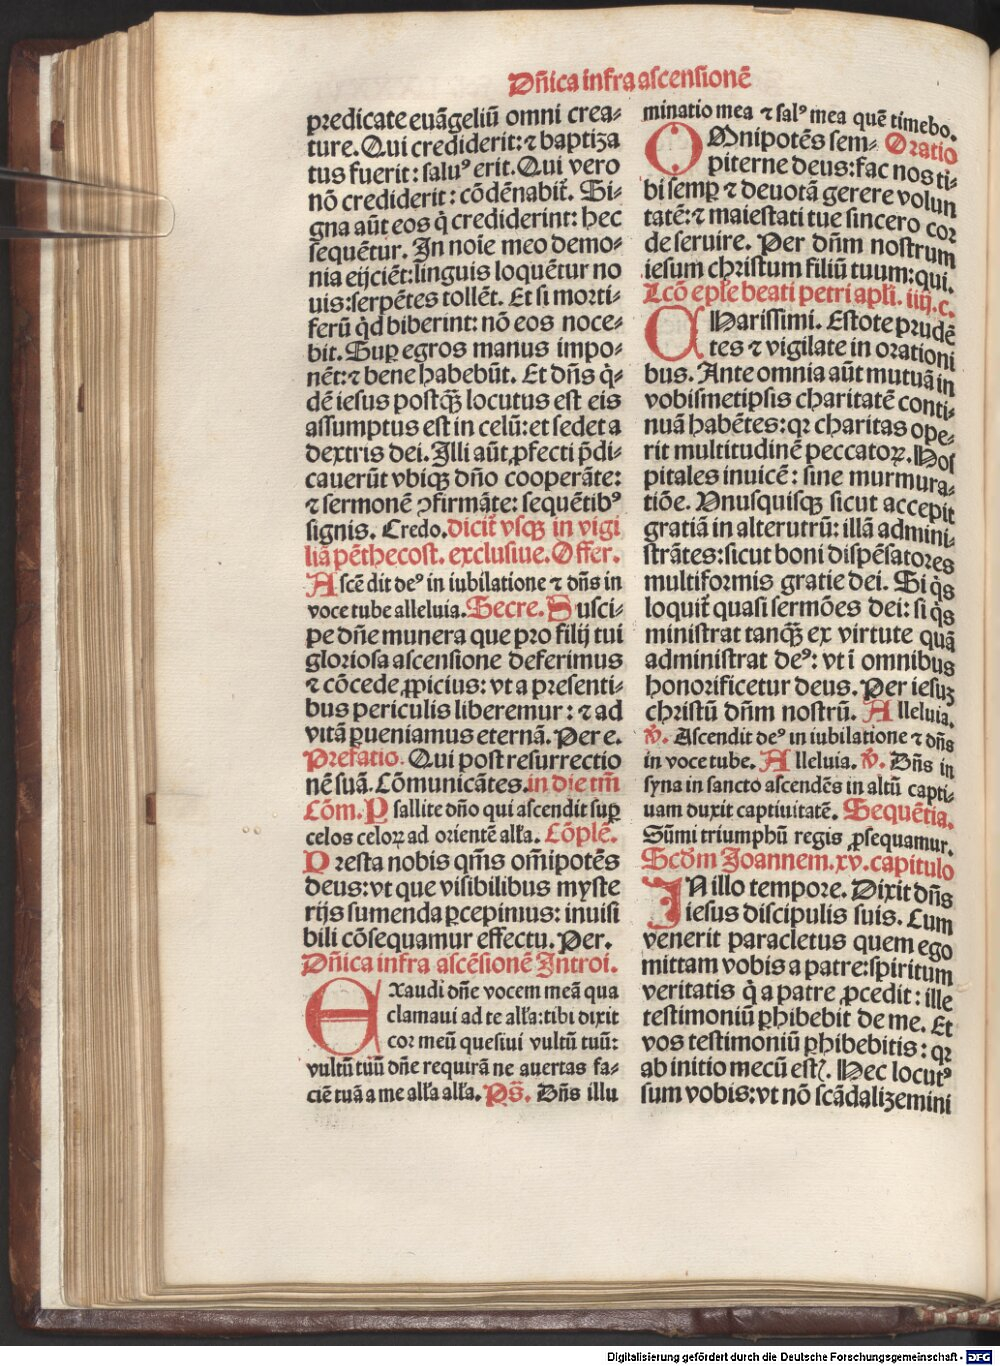 Dn̄ica infra ascensionē
predicate euāgeliū omni crea⸗
ture. Qui crediderit: ⁊ baptiza
tus fuerit: saluꝰ erit. Qui vero
nō crediderit: cōdēnabit᷑. Si⸗
gna aūt eos q̇ crediderint: hec
sequētur. In noīe meo demo⸗
nia eijciēt: linguis loquētur no
uis: serpētes tollēt. Et si morti⸗
ferū q̇d biberint: nō eos noce⸗
bit. Suꝑ egros manus impo⸗
nēt: ⁊ bene habebūt. Et dn̄s q̇⸗
dē iesus postqꝫ̄ locutus est eis
assumptus est in celū: et sedet a
dextris dei. Illi aūt ꝓfecti p̄di⸗
cauerūt vbiqꝫ dn̄o cooperāte:
⁊ sermonē ꝯfirmāte: sequētibꝰ
signis. Credo. dicit᷑ vsqꝫ in vigi
liā pēthecost. exclusiue. Offer.
Ascēdit deꝰ in iubilatione ⁊ dn̄s in
voce tube alleluia. Secre. Susci⸗
pe dn̄e munera que pro filij tui
gloriosa ascensione deferimus
⁊ cōcede ꝓpicius: vt a presenti⸗
bus periculis liberemur: ⁊ ad
vitā ꝑueniamus eternā. Per e.
Prefatio. Qui post resurrectio
nē suā. Cōmunicātes. in die tm̄
Cōm. Psallite dn̄o qui ascendit suꝑ
celos celoꝝ ad orientē alľa. Cōplē.
Presta nobis qm̄s om̄ipotēs
deus: vt que visibilibus myste
rijs sumenda ꝑcepimus: inuisi
bili cōsequamur effectu. Per.
Dn̄ica infra ascēsionē Introi.
Exaudi dn̄e vocem meā qua
clamaui ad te alľa: tibi dixit
cor meū quesiui vultū tuū:
vultū tuū dn̄e requirā ne auertas fa⸗
ciē tuā a me alľa alľa. Ps̄. Dn̄s illu
minatio mea ⁊ salꝰ mea quē timebo.
OMnipotēs sem⸗ Oratio
piterne deus: fac nos ti⸗
bi semꝑ ⁊ deuotā gerere volun
tatē: ⁊ maiestati tue sincero cor
de seruire. Per dn̄m nostrum
iesum christum filiū tuum: qui.
Lcō eple beati petri apľi. iiij. c.
CHarissimi. Estote prudē
tes ⁊ vigilate in orationi
bus. Ante omnia aūt mutuā in
vobismetipsis charitatē conti⸗
nuā habētes: qꝛ charitas ope⸗
rit multitudinē peccatoꝝ. Hos
pitales inuicē: sine murmura⸗
tiōe. Vnusquisqꝫ sicut accepit
gratiā in alterutrū: illā admini⸗
strātes: sicut boni dispēsatores
multiformis gratie dei. Si q̇s
loquit᷑ quasi sermōes dei: si q̇s
ministrat tanqꝫ̄ ex virtute quā
administrat deꝰ: vt ī omnibus
honorificetur deus. Per iesuꝫ
christū dn̄m nostrū. Alleluia.
℣. Ascendit deꝰ in iubilatione ⁊ dn̄s
in voce tube. Alleluia. ℣. Dn̄s in
syna in sancto ascendēs in altū capti⸗
uam duxit captiuitatē. Sequētia.
Sūmi triumphū regis ꝓsequamur.
Scďm Joannem. xv. capitulo
IN illo tempore. Dixit dn̄s
iesus discipulis suis. Cum
venerit paracletus quem ego
mittam vobis a patre: spiritum
veritatis q̇ a patre ꝓcedit: ille
testimoniū ꝑhibebit de me. Et
vos testimoniū ꝑhibebitis: qꝛ
ab initio mecū estꝭ. Hec locutꝰ
sum vobis: vt nō scādalizemini
Digitalisierung gefördert durch die Deutsche Forschungsgemeinschaft - DFG